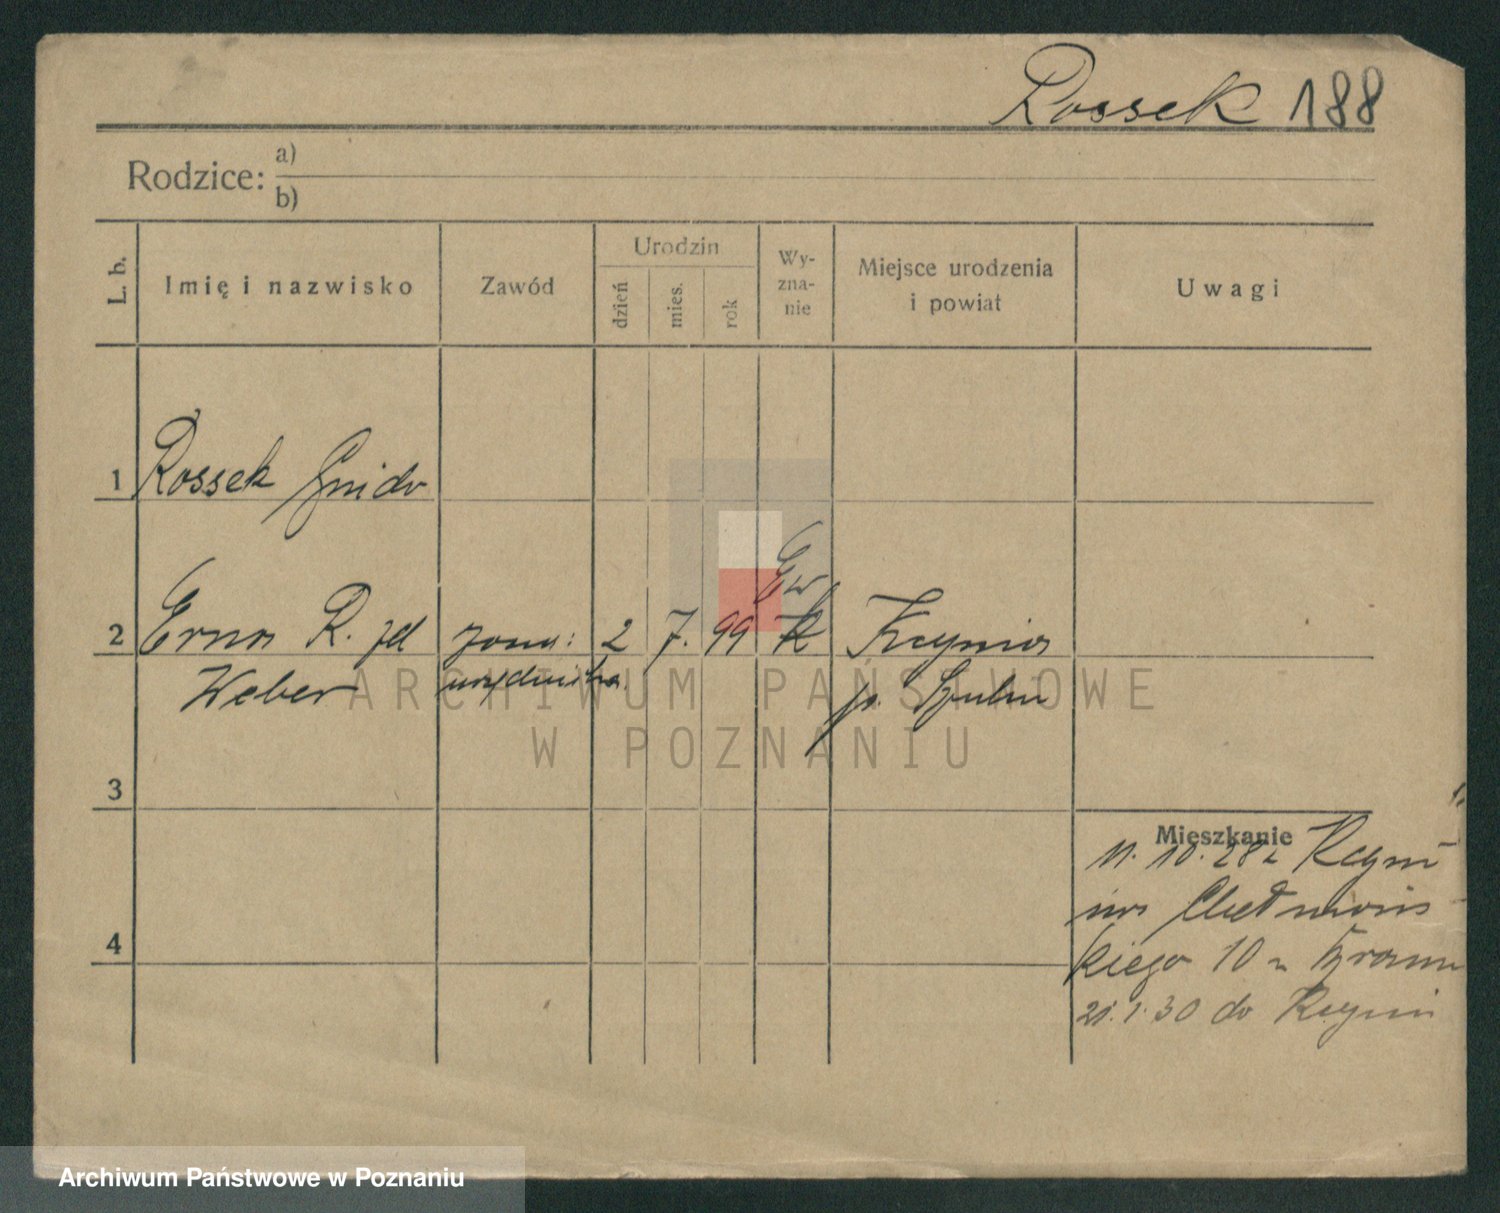 Rossek 188
Rodzice: a)
b)
L. b.
Imię i nazwisko
Zawód
Urodzin
dzień
mies.
rok
Wy-
zna-
nie
Miejsce urodzenia
i powiat
Uwagi
1 Rossek Guido
Ew
2 Erna R. zd żona: 2 7. 99 k Kcynia
Weber urzędniczka. p. Szubin
ARCHIWUM PAŃSTWOWE
W POZNANIU
3
Mieszkanie
11. 10. 28 z Kcyni
na Chełmońs
kiego 10 u
4
21.1.30 do Kcyni
Archiwum Państwowe w Poznaniu